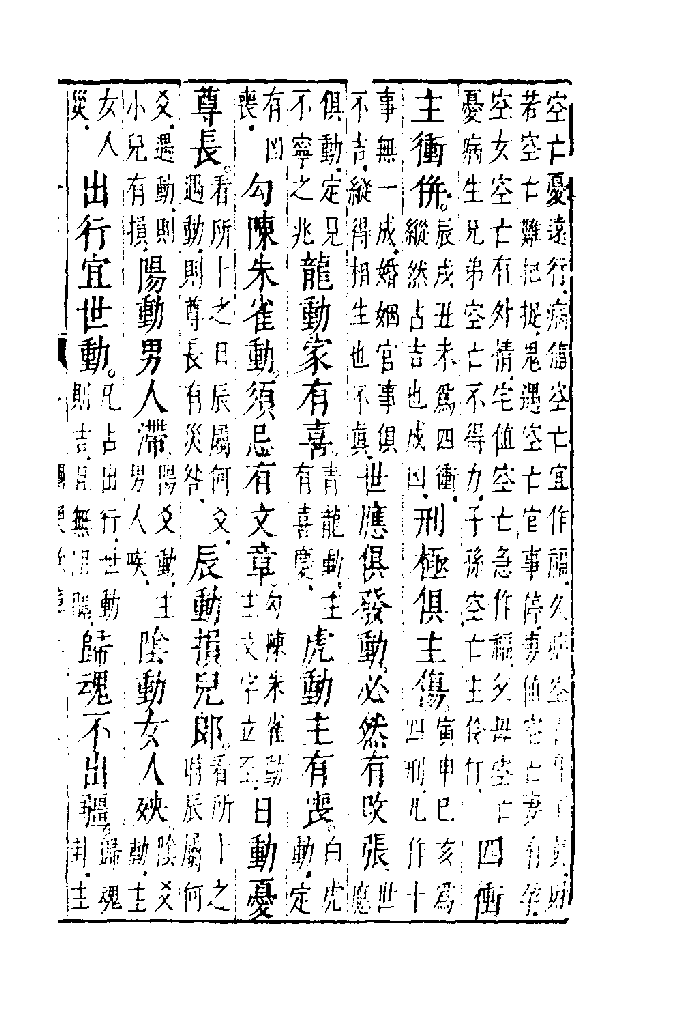 空亡憂遠行病値空亡宜作福久病空
若空亡難把捉鬼遇空亡官事停妻値空亡妻有孕
空女空亡有外情宅値空亡急作福父母空亡
憂病生兄弟空亡不得力子孫空亡主伶仃　四衝
主衝併辰戌丑未爲四衝縱然占吉也成凶刑極俱主傷寅申巳亥爲四刑凡作十
事無一成婚姻官事俱不吉縱得相生也不眞世應俱發動必然有改張世應
俱動定見不寧之兆龍動家有喜靑龍動主有喜慶虎動主有喪白虎動定
有凶喪勾陳朱雀動須忌有文章勾陳朱雀動主文字立至日動憂
尊長看所卜之日辰屬何爻遇動則尊長有災咎辰動損兒郎看所卜之時辰屬何
爻遇動則小兒有損陽動男人滯陽爻動主男人災陰動女人殃陰爻動主
女人災出行宜世動凡占出行世動則吉歸魂不出疆歸魂卦主